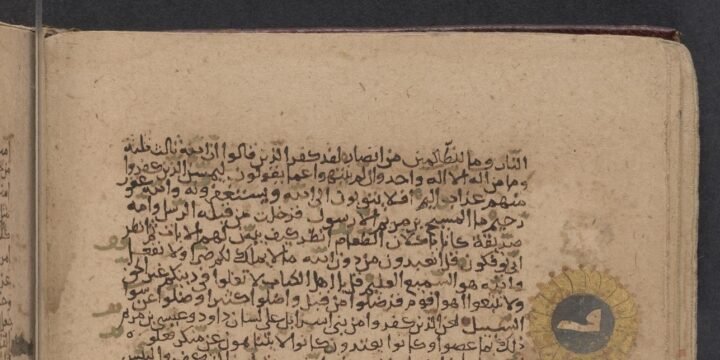 النار وما للظالمين من انصار لقد كفر الذين قالوا ان الله ثالث ثلثة
وما من اله الا اله واحد وان لم ينتهوا عما يقولون ليمسن الذين كفروا
منهم عذاب اليم افلا يتوبون الى الله ويستغفرونه والله غفور
رحيم ما المسيح بن مريم الا رسول قد خلت من قبله الرسل وامه
صديقة كانا ياكلان الطعام انظر كيف نبين لهم الايات ثم انظر
انى يوفكون قل اتعبدون من دون الله ما لا يملك لكم ضرا ولا نفعا
والله هو السميع العليم قل يا اهل الكتاب لا تغلوا في دينكم غير الحق
ولا تتبعوا اهوا قوم قد ضلوا من قبل واضلوا كثيرا وضلوا عن سوا
السبيل لعن الذين كفروا من بني اسرايل على لسان داود وعيسى بن مريم
ذلك بما عصوا وكانوا يعتدون كانوا لا يتناهون عن منكر فعلوه